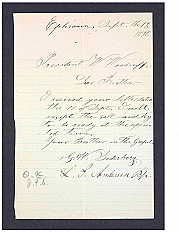 Ephraim, Sept. 16 th,
189
President W. Woodruff
Dear Brother
I received your letter dated
the 11 of Sept. I will
except the call and try
to be ready at the appoin
ted time.
Your Brother in the Gospel
G. W.
O. K.
J. F. S.
L. S. Bp.